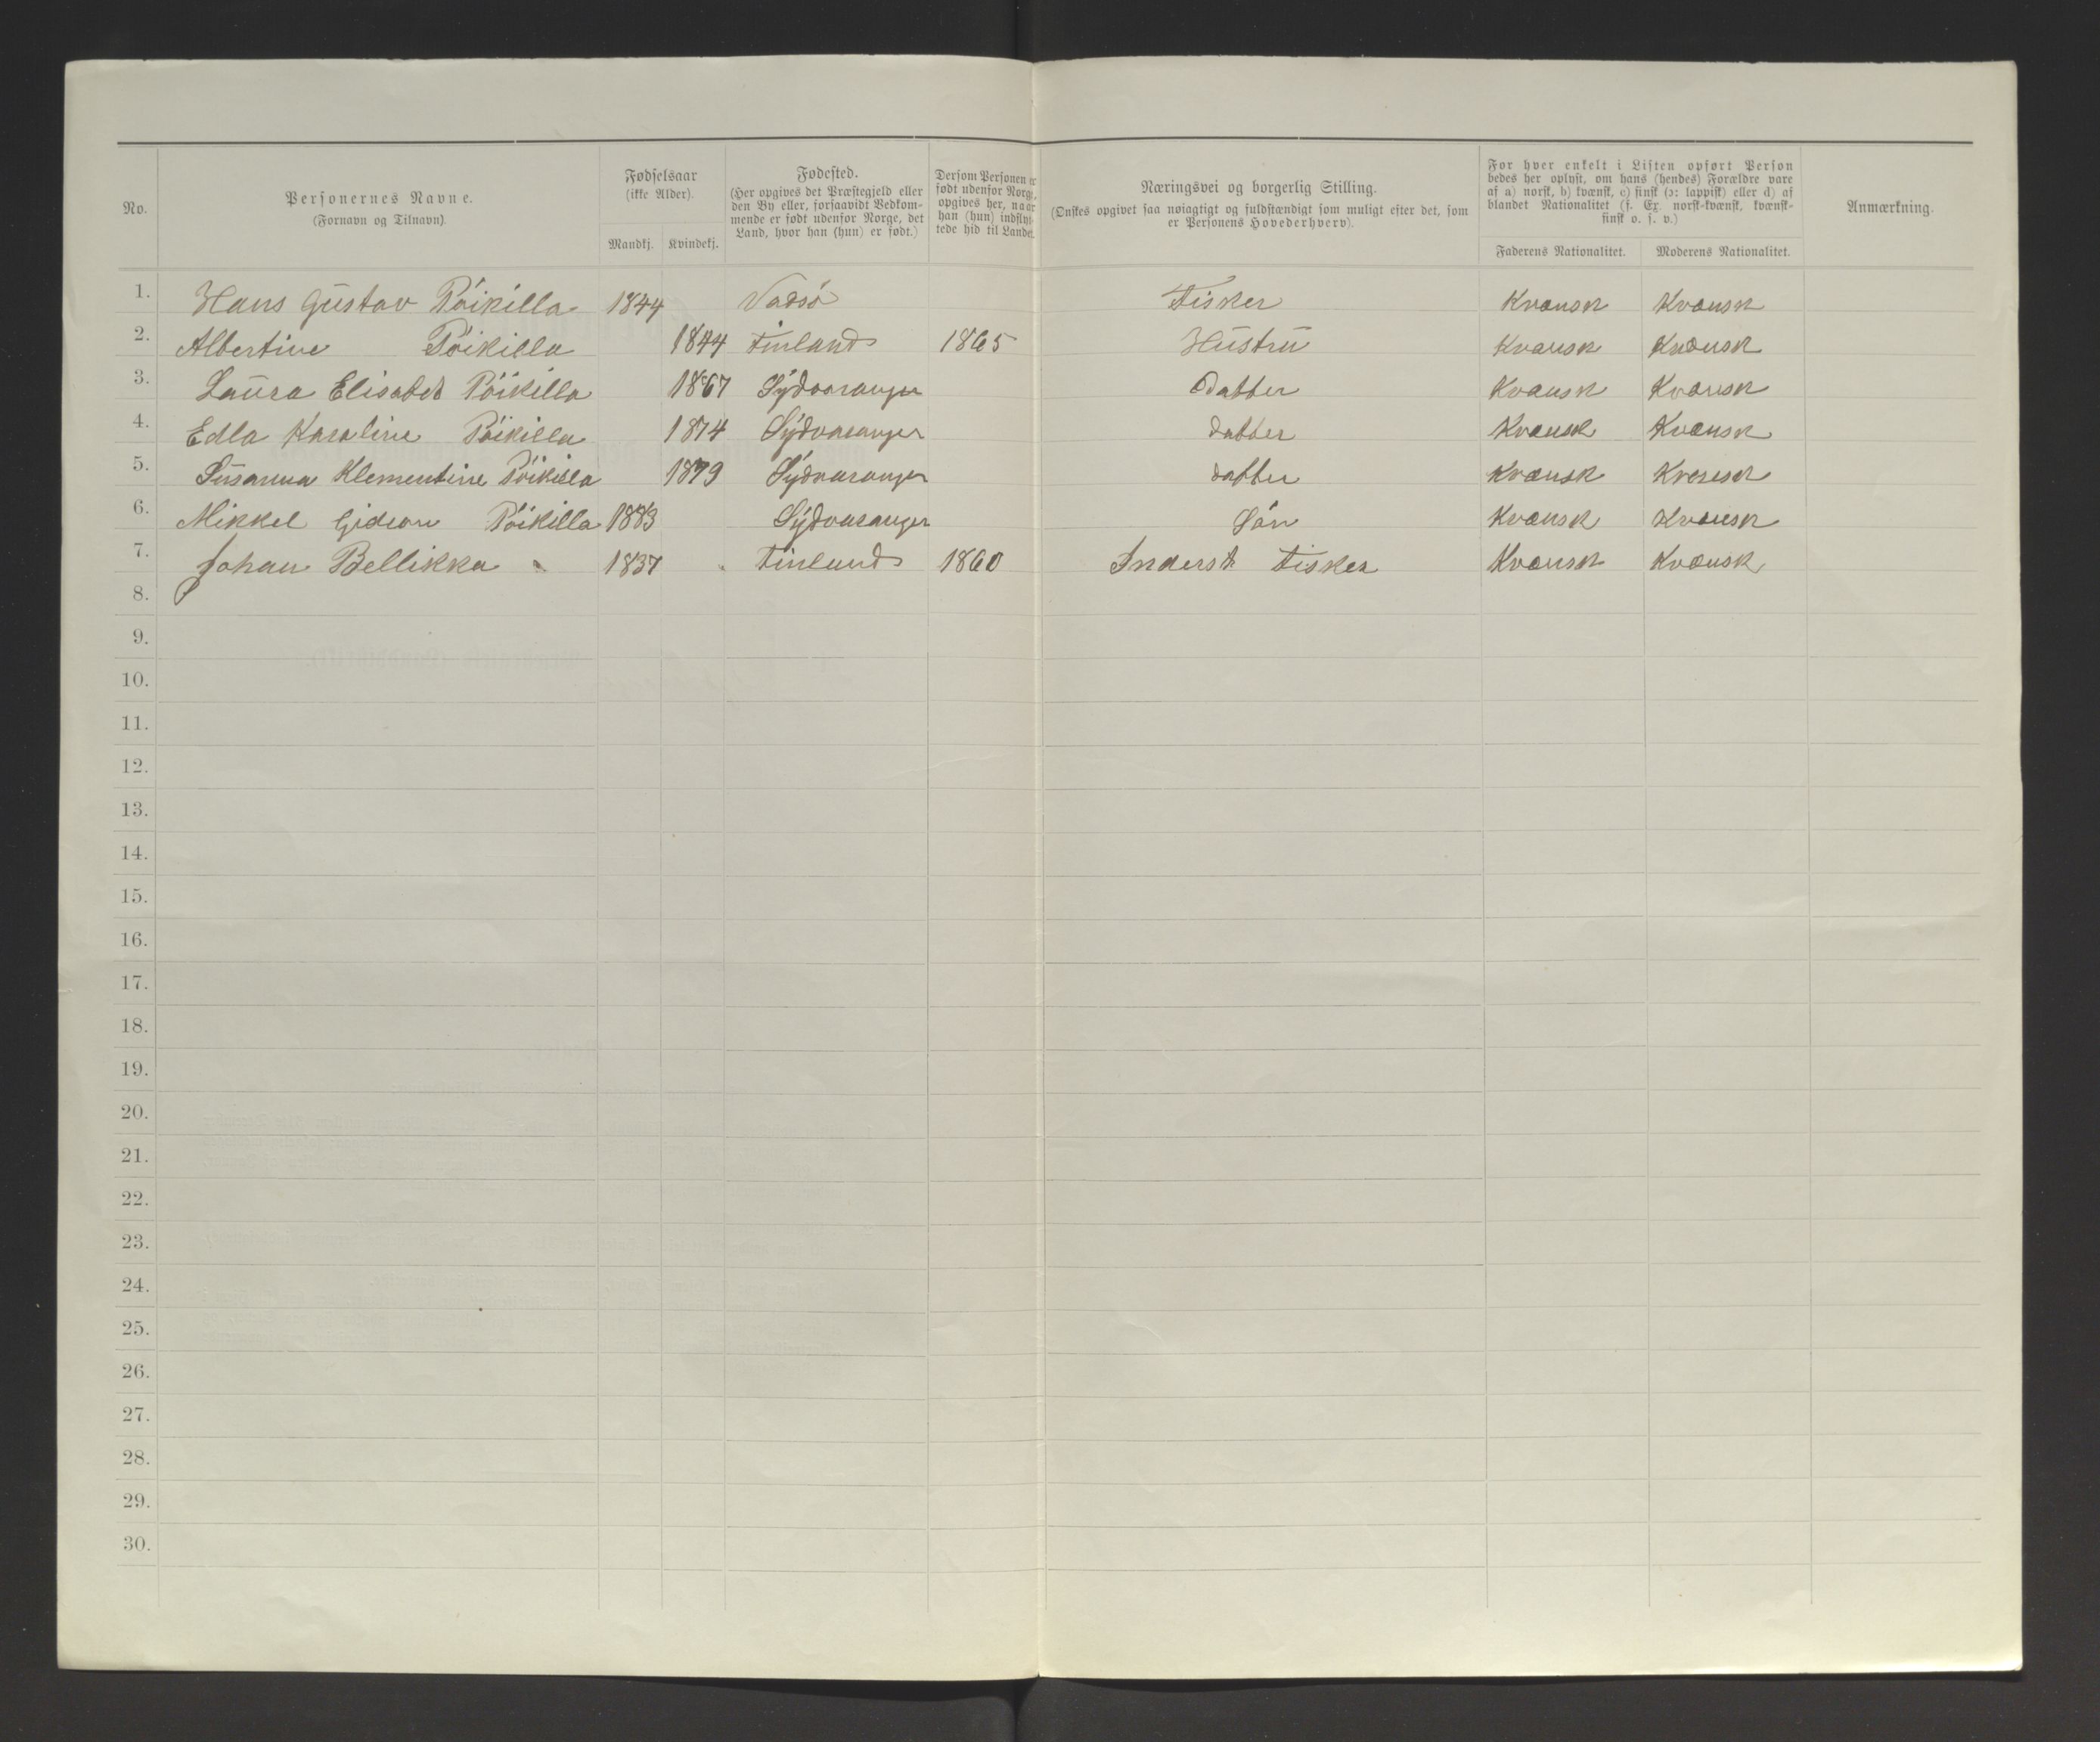 No.
Personernes Navne.
(Fornavn og Tilnavn)
Fødselsaar
(ikke Alder).
Mandkj. Kvindekj.
Fødested.
(Her opgives det Præstegjeld eller
den By eller, forsaavidt Vedkom-
mende er født udenfor Norge, det
Land, hvor han (hun) er født.)
Dersom Personen er
født udenfor Norge,
opgives her, naar
han (hun) indflyt-
tede hid til Landet.
Næringsvei og borgerlig Stilling.
(Ønskes opgivet saa nøiagtigt og fuldstændigt som muligt efter det, som
er Personens Hovederhverv).
For hver enkelt i Listen opført Person
bedes her oplyst, om hans (hendes) Forældre vare
af a) norsk, b) kvænsk, c) finsk (ɔ: lappisk) eller d) af
blandet Nationalitet (f. Ex. norsk-kvænsk, kvænsk-
finsk o. s. v.)
Faderens Nationalitet. Moderens Nationalitet.
Anmærkning.
1. Hans Gustav Pöikilla 1844 Vadsö Fisker Kvænsk Kvænsk
2. Albertine Pöikilla 1844 Finland 1865 Hustru Kvænsk Kvænsk
3. Laura Elisabet Pöikilla 1867 Sydvaranger Datter Kvænsk Kvænsk
4. Edla Karoline Pöikilla 1874 Sydvaranger datter Kvænsk Kvænsk
5. Susanna Klementine Pöikilla 1879 Sydvaranger datter Kvænsk Kvænsk
6. Mikkel Gideon Pöikilla 1883 Sydvaranger Sön Kvænsk Kvænsk
7. Johan Bellikka 1837 Finland 1860 Inderst Fisker Kvænsk Kvænsk
8.
9.
10.
11.
12.
13.
14.
15.
16.
17.
18.
19.
20.
21.
22.
23.
24.
25.
26.
27.
28.
29.
30.